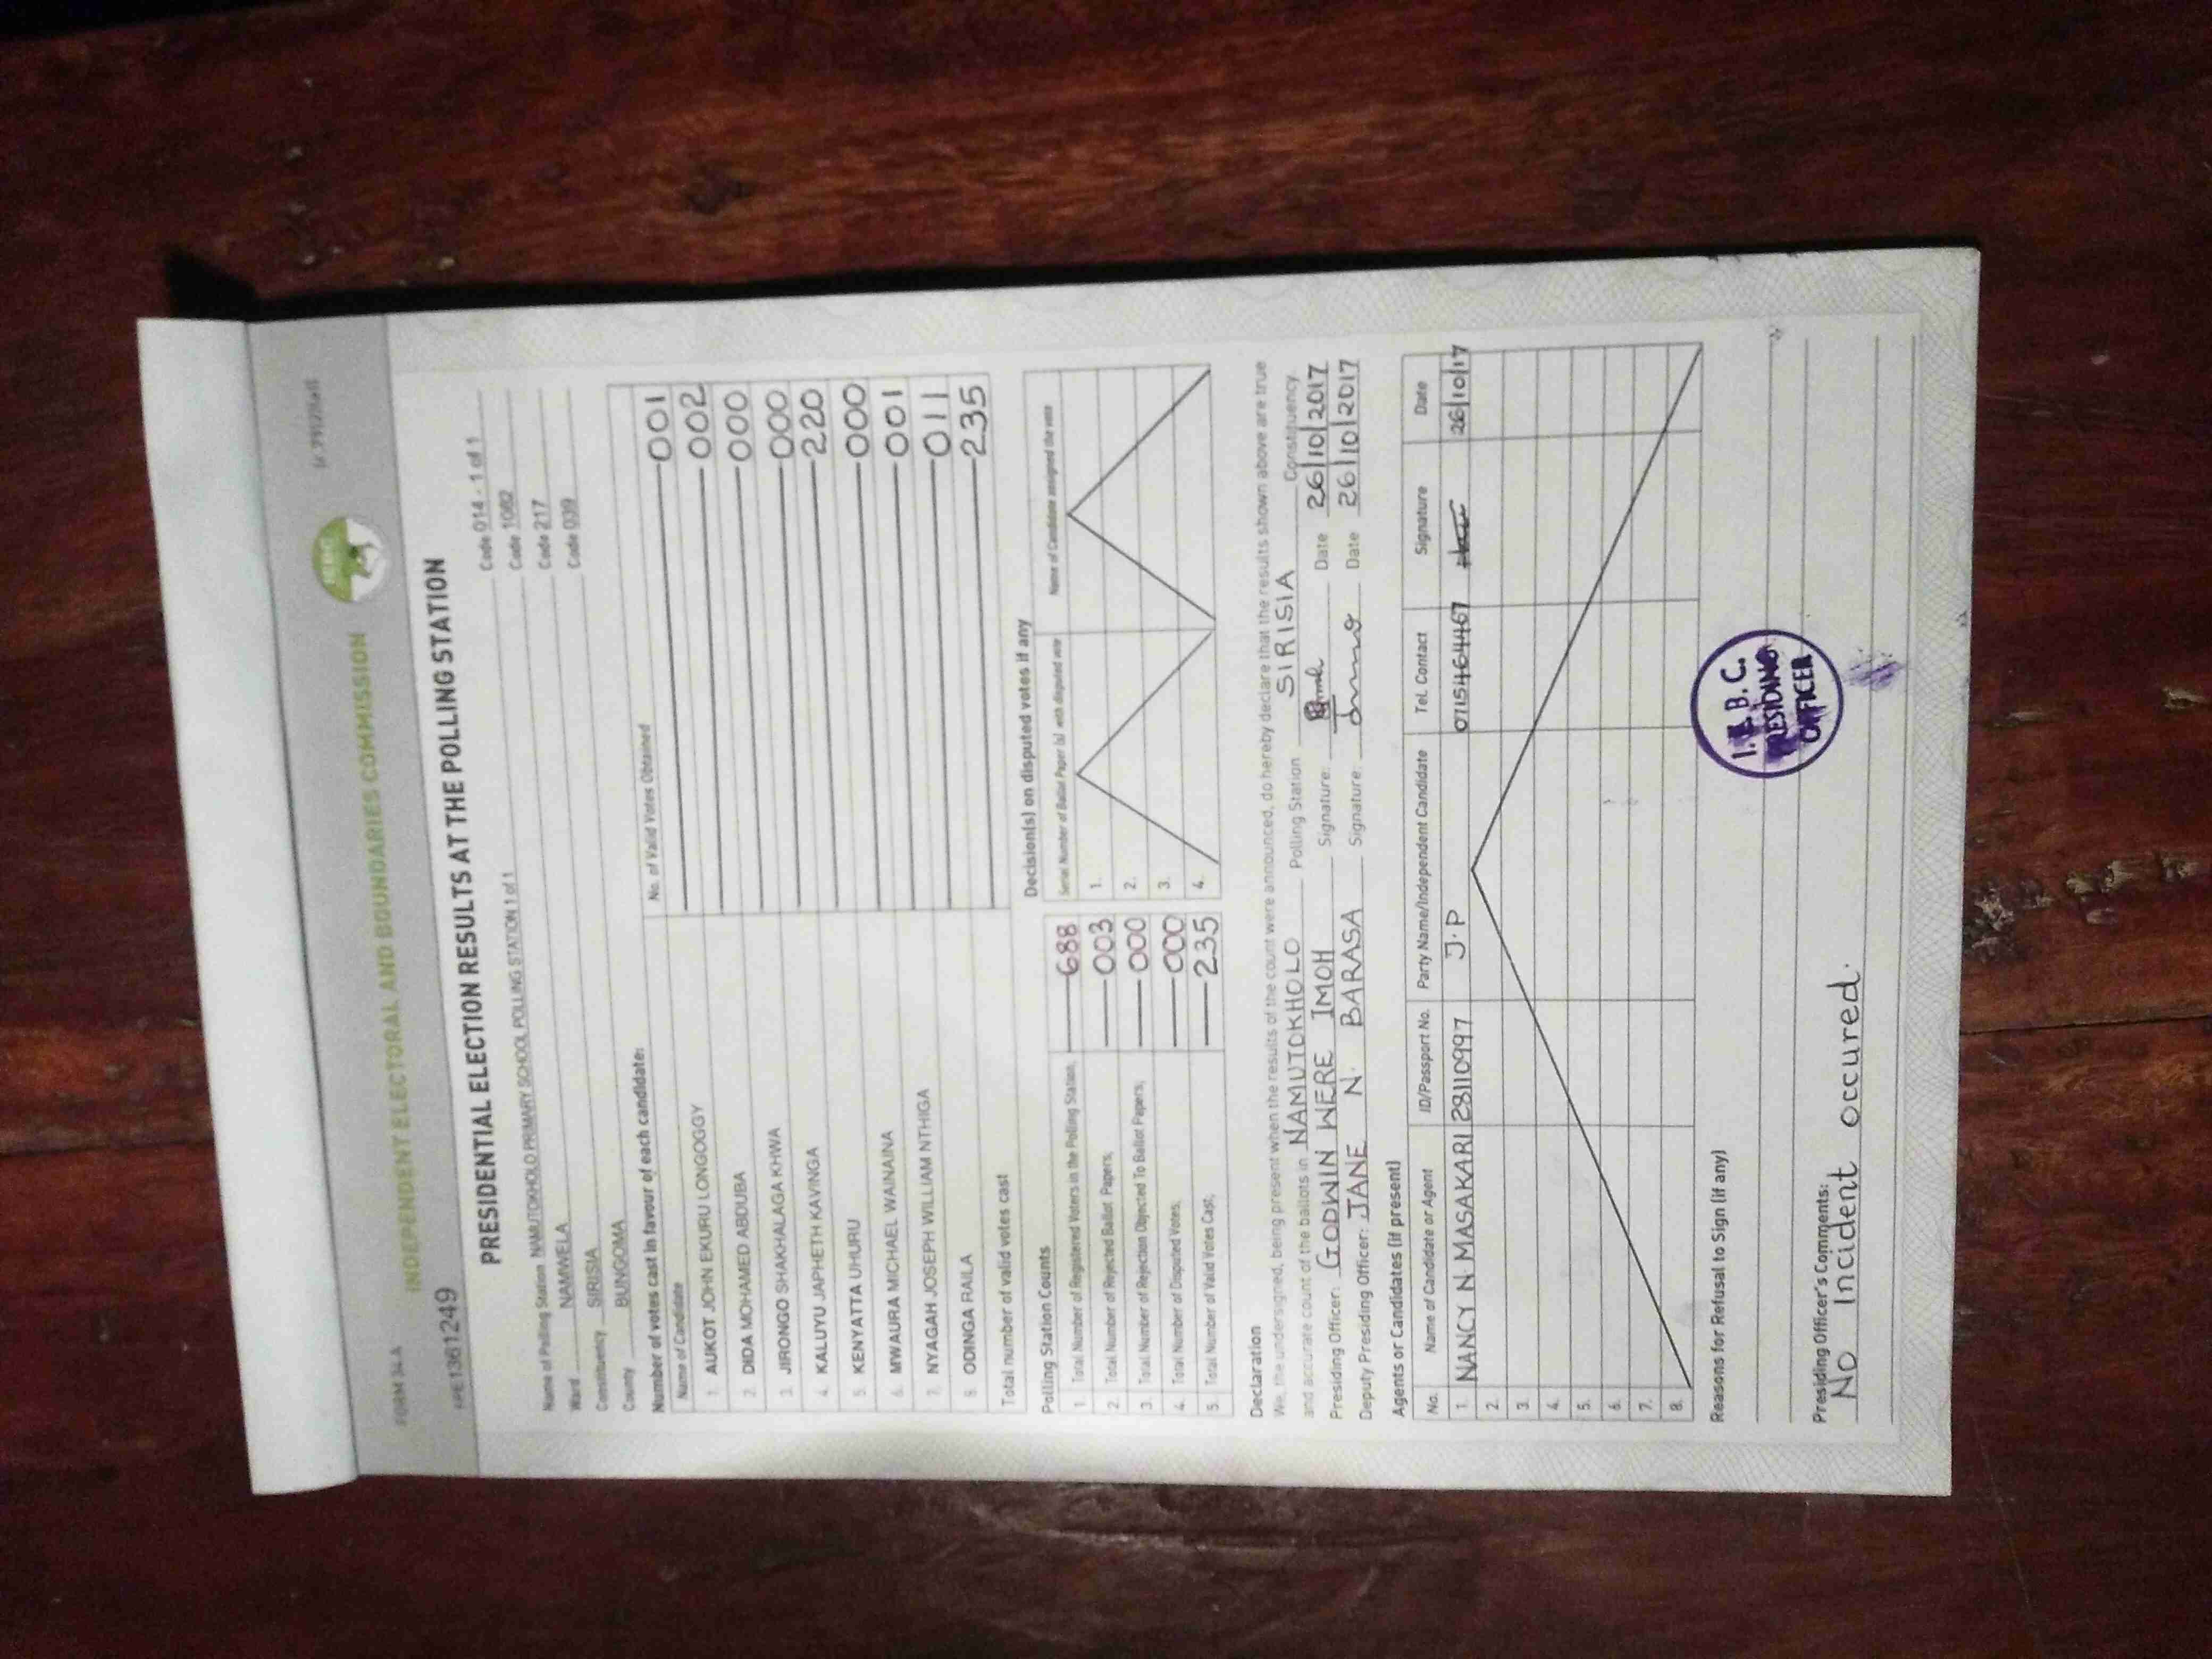 FORM 34A
INDEPENDENT ELECTORAL AND BOUNDARIES COMMISSION
PRE1361249
PRESIDENTIAL ELECTION RESULTS AT THE POLLING STATION
Name of Polling Station NAMUTOKHOLO PRIMARY SCHOOL POLLING STATION 1 of 1 Code 014 - 1 of 1
Ward NAMWELA Code 1082
Constituency SIRISIA Code 217
County BUNGOMA Code 039
Number of votes cast in favour of each candidate:
Name of Candidate No. of Valid Votes Obtained
1. AUKOT JOHN EKURU LONGOGGY 001
2. DIDA MOHAMED ABDUBA 002
3. JIRONGO SHAKHALAGA KHWA 000
4. KALUYU JAPHETH KAVINGA 000
5. KENYATTA UHURU 220
6. MWAURA MICHAEL WAINAINA 000
7. NYAGAH JOSEPH WILLIAM NTHIGA 001
8. ODINGA RAILA 011
Total number of valid votes cast 235
Polling Station Counts
1. Total Number of Registered Voters in the Polling Station, 688
2. Total Number of Rejected Ballot Papers, 003
3. Total Number of Rejection Objected To Ballot Papers, 000
4. Total Number of Disputed Votes, 000
5. Total Number of Valid Votes Cast, 235
Decision(s) on disputed votes if any
Serial Number of Ballot Paper (s) with disputed vote Name of Candidate assigned the vote
1.
2.
3.
4.
Declaration
We, the undersigned, being present when the results of the count were announced, do hereby declare that the results shown above are true
and accurate count of the ballots in NAMUTOKHOLO Polling Station SIRISIA Constituency.
Presiding Officer: GODWIN WERE IMOH Signature: Date 26/10/2017
Deputy Presiding Officer: JANE N. BARASA Signature: Date 26/10/2017
Agents or Candidates (if present)
No. Name of Candidate or Agent ID/Passport No. Party Name/Independent Candidate Tel. Contact Signature Date
1. NANCY N MASAKARI 28110997 J.P 0715464467 26/10/17
2.
3.
4.
5.
6.
7.
8.
Reasons for Refusal to Sign (if any)
I.E.B.C.
PRESIDING
OFFICER
Presiding Officer's Comments:
No Incident occured.